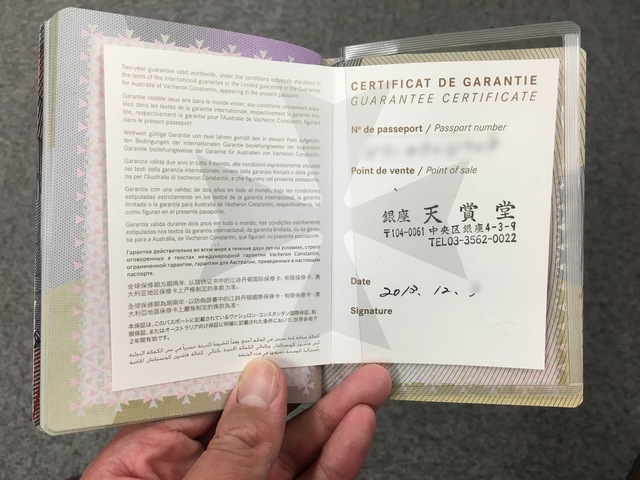 Two-year guarantee valid worldwide, under the conditions expressly stipulated in
the texts of the International guarantee or the Limited guarantee or the Guarantee
for Australia of Vacheron Constantin, appearing in the present passport.
Garantie valable deux ans dans le monde entier, aux conditions strictement stipu-
lées dans les textes de la garantie internationale, respectivement la garantie limi-
tée, respectivement garantie pour l'Australie de Vacheron Constantin, figurant
dans le présent passeport.
Weltweit gültige Garantie von zwei Jahren gemäß den in diesem Pass aufgeführ-
ten Bedingungen der internationalen Garantie beziehungsweise der begrenzten
Garantie beziehungsweise der Garantie für Australien von Vacheron Constantin.
Garanzia valida due anni in tutto il mondo, alle condizioni espressamente stipulate
nei testi della garanzia internazionale, ovvero della garanzia limitata o della garan-
zia per l'Australia di Vacheron Constantin, e che figurano nel presente passaporto.
Garantía con una validez de dos años en todo el mundo, bajo las condiciones
estrictamente estipuladas en los textos de la garantía internacional, la garantía
limitada o la garantía para Australia de Vacheron Constantin, respectivamente, tal
como figuran en el presente pasaporte.
Garantia válida durante dois anos em todo o mundo, nas condições estritamente
estipuladas nos textos da garantia internacional, da garantia limitada, ou da garan-
tia para a Austrália, de Vacheron Constantin, que figuram no presente passaporte.
Гарантия действительна во всем мире в течение двух лет на условиях, строго
оговоренных в текстах международной гарантии Vacheron Constantin,
ограниченной гарантии, гарантии для Австралии, приведенных в настоящем
паспорте.
全球保修期为期两年,以跻身证书中的江诗丹顿国际保修卡、有限保修卡、澳
大利亚地区保修卡上严格制定的条款为准。
本保証は、このパスポートに記載されているヴァシュロン・コンスタンタン国際保証、制
限保証、またはオーストラリア向け保証に明確に記載された条件において、世界各地で
2年間有効です。
CERTIFICAT DE GARANTIE
GUARANTEE CERTIFICATE
Nº de passeport / Passport number
Point de vente / Point of sale
銀座 天賞堂
〒104-0061 中央区銀座4-3-9
TEL03-3562-0022
Date
2013. 12.
Signature